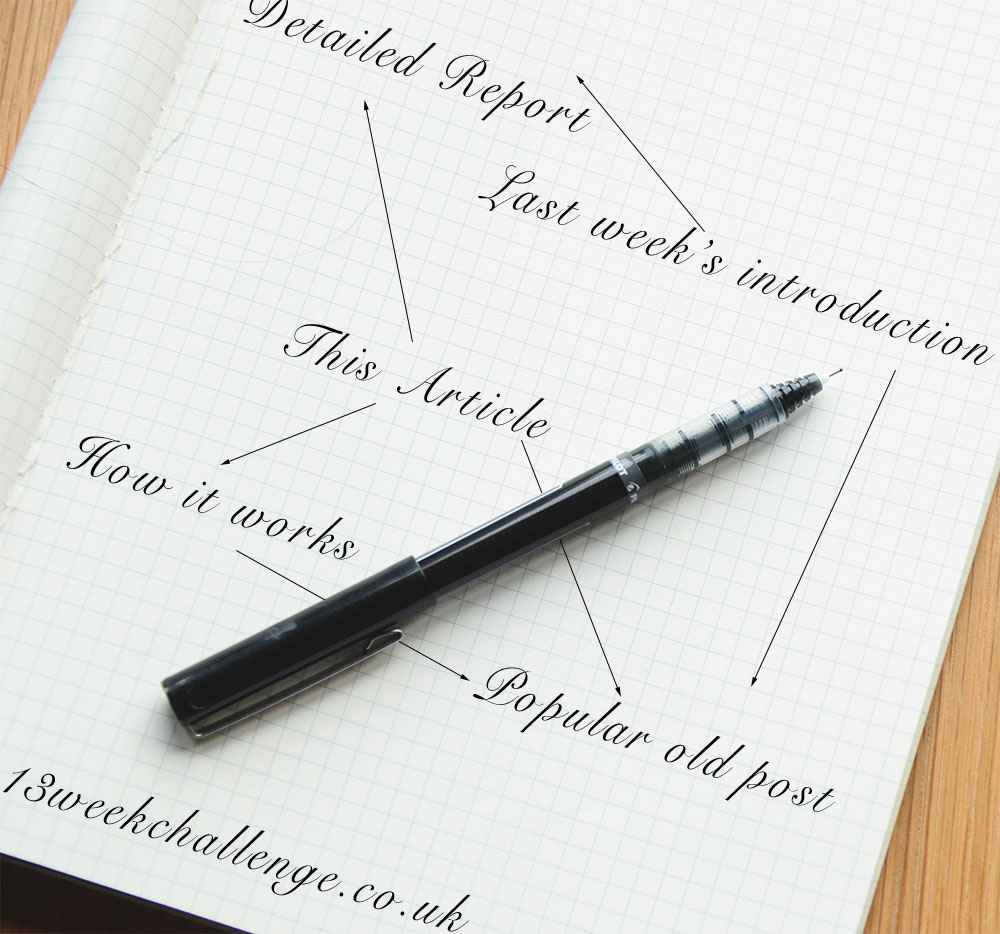 Detailed Report
Last week's introduction
This Article
How it works
Popular old post
13weekchallenge.co.uk